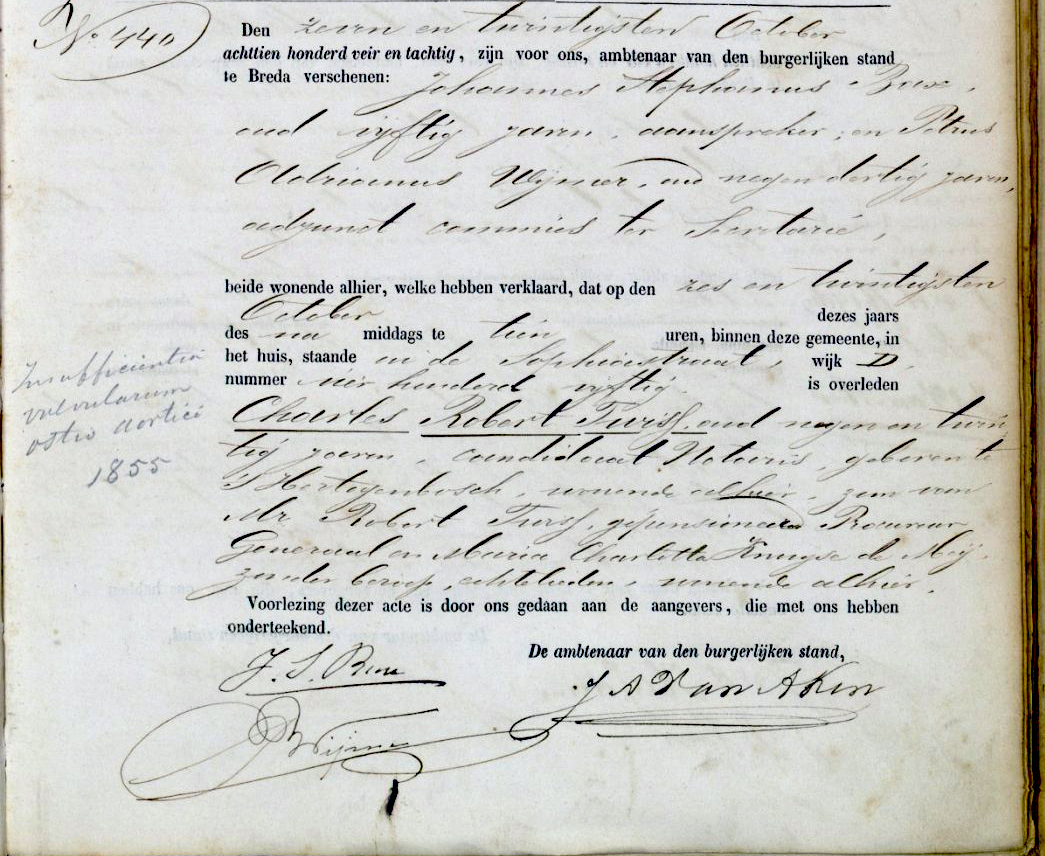 No. 440
Den zeven en twintigsten October
achttien honderd veir en tachtig, zijn voor ons, ambtenaar van den burgerlijken stand
te Breda verschenen: Johannes Stephanus
oud vijftig jaren, aanspreker, en Petrus
Adrianus Wijmer, oud negen dertig jaren,
adjunct commies ter Secretarie,
beide wonende alhier, welke hebben verklaard, dat op den zes en twintigsten
October dezes jaars
des na middags te tien uren, binnen deze gemeente, in
het huis, staande in de Sophiastraat, wijk D,
nummer vier honderd vijftig is overleden
Insufficientia
valvularum
ostio aortici
1855
Charles Robert oud negen en twin
tig jaren, candidaat Notaris, geboren te
'sHertogenbosch, wonende alhier, zoon van
Mr Robert gepensioneerd Procureur
Generaal en Maria Charlotta
zonder beroep, echtelieden, wonende alhier.
Voorlezing dezer acte is door ons gedaan aan de aangevers, die met ons hebben
onderteekend.
De ambtenaar van den burgerlijken stand,
J. S.
J A Van Aken
Wijmer